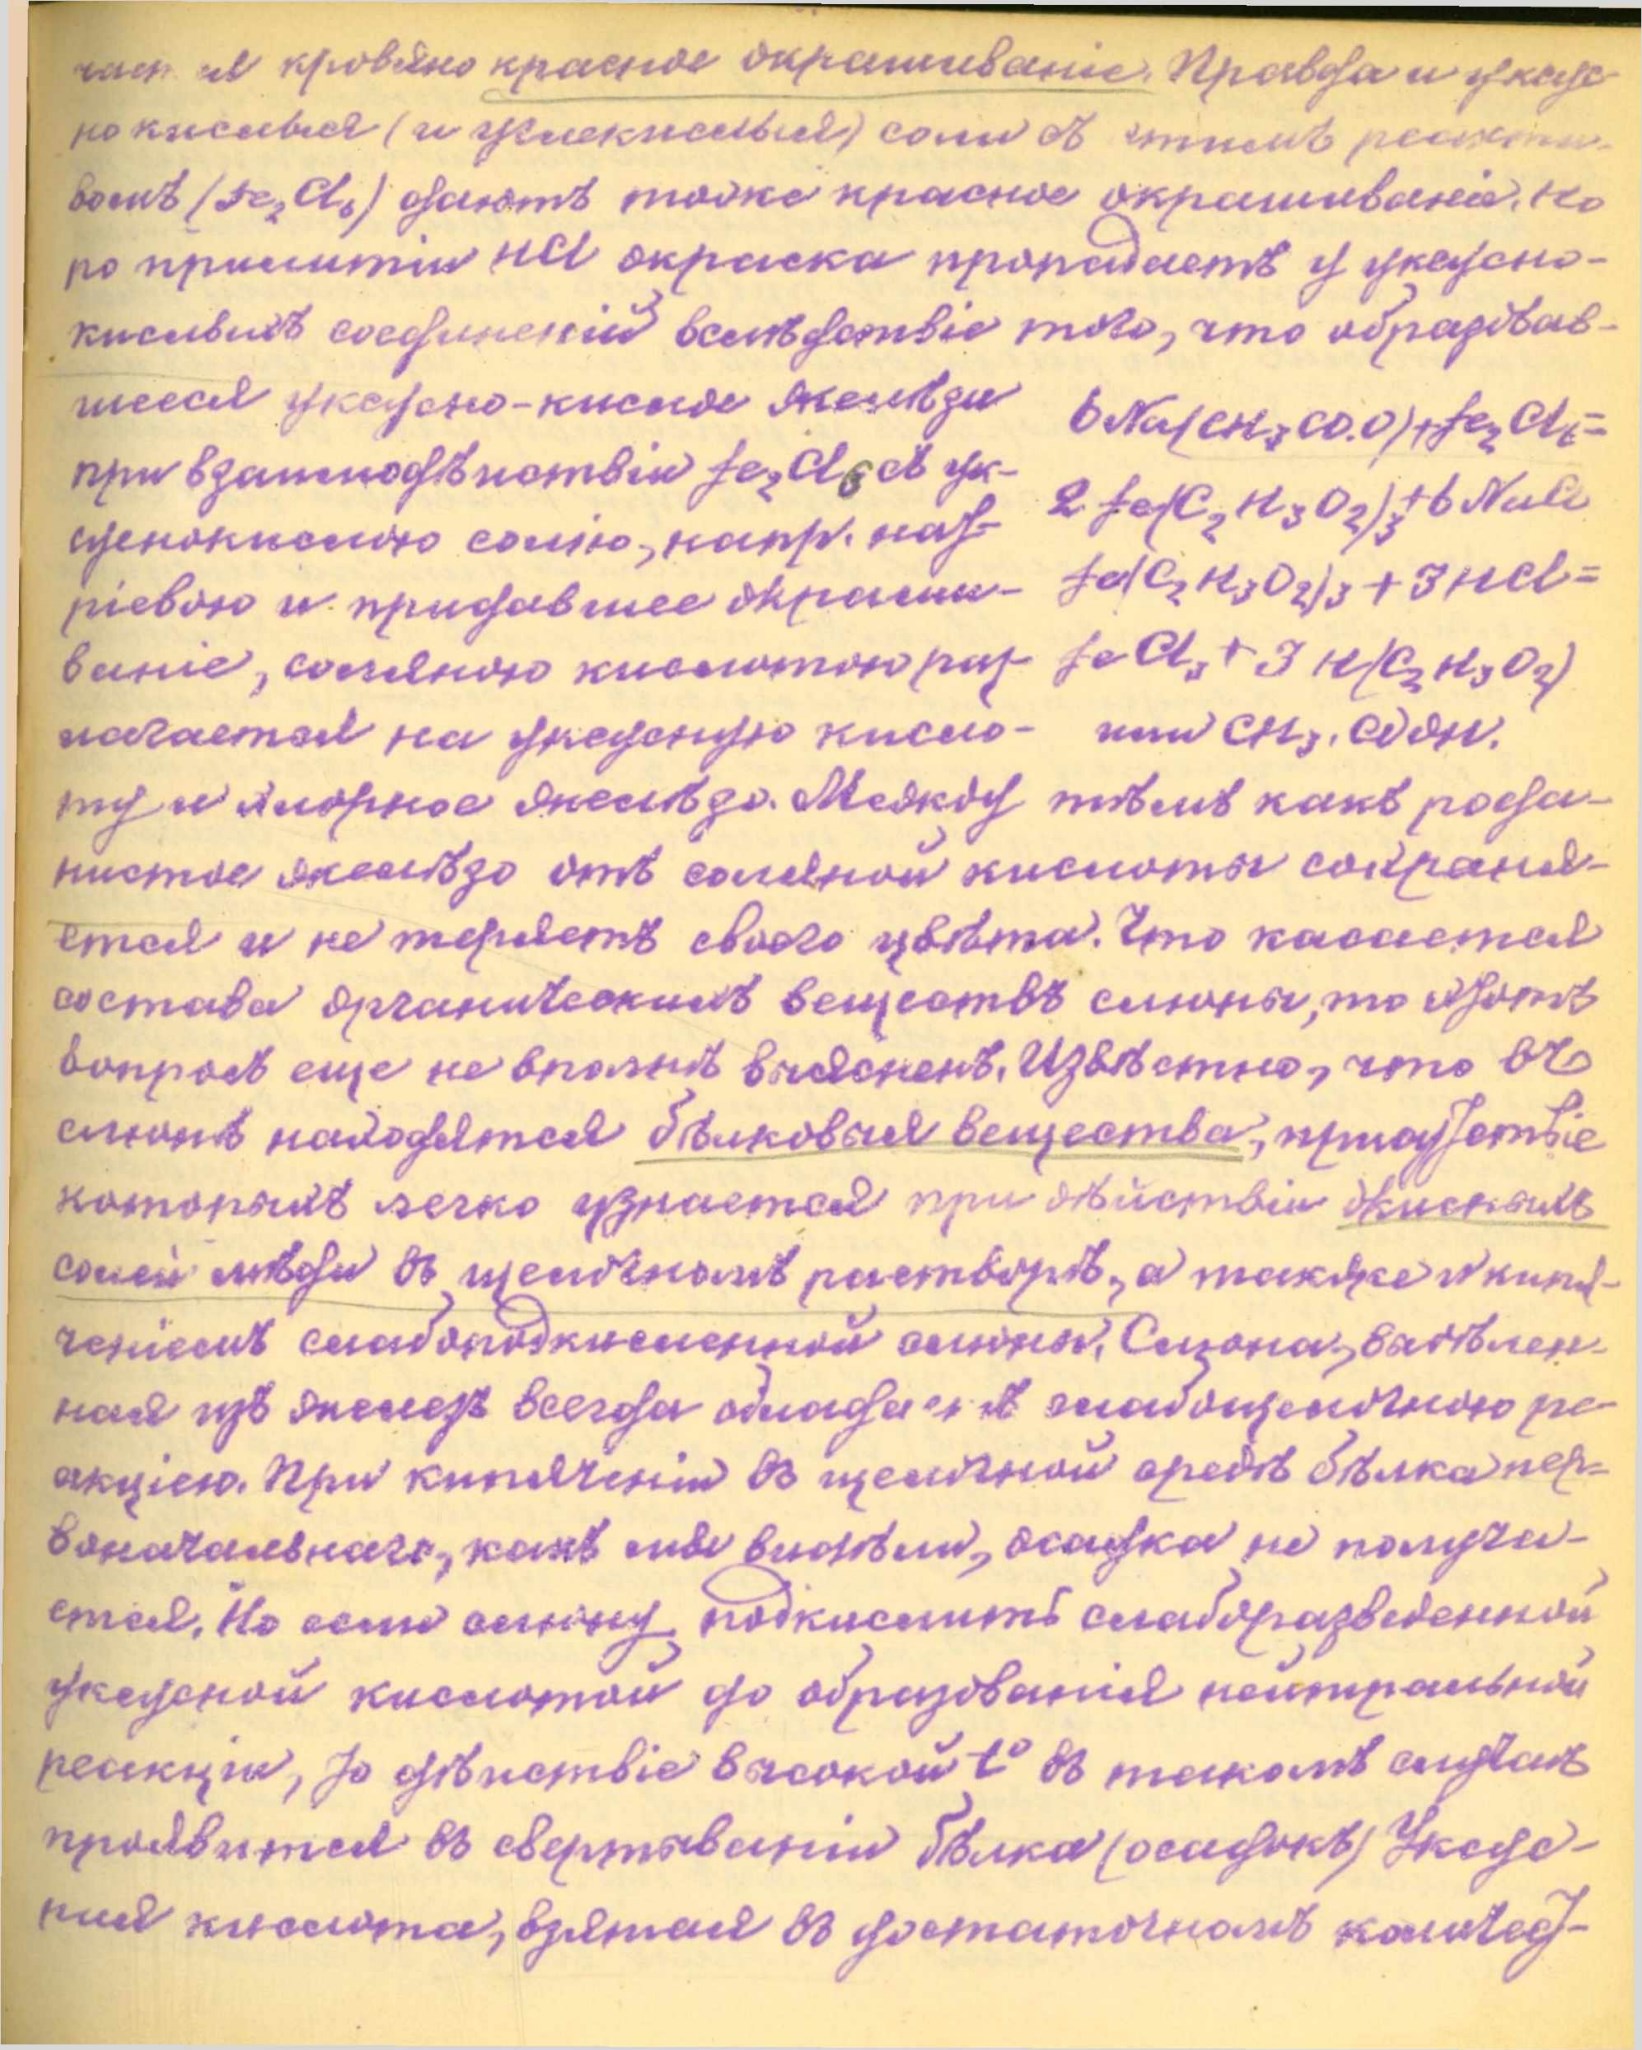 кровяно красное окрашиваніе. Правда и уксус-
нокислыя (и углекислыя) соли съ этимъ реакти-
вомъ (Fe2Cl6) даютъ тоже красное окрашиваніе. Но
по прилитіи HCl окраска пропадаетъ у уксусно-
кислыхъ соединеній вслѣдствіе того, что образовав-
шееся уксусно-кислое желѣзо
при взаимодѣйствіи Fe2Cl6 съ ук-
суснокислою солью, напр. нат-
ріевою и придавшее окраши-
ваніе, соляною кислотою раз-
лагается на уксусную кисло-
6Na(CH3CO.O)+Fe2Cl6=
2Fe(C2H3O2)3+6NaCl
Fe(C2H3O2)3+3HCl=
FeCl3+3H(C2H3O2)
или CH3.COOH.
ту и хлорное желѣзо. Между тѣмъ какъ рода-
нистое желѣзо отъ соляной кислоты сохраня-
ется и не теряетъ своего цвѣта. Что касается
состава органическихъ веществъ слюны, то этотъ
вопросъ еще не вполнѣ выясненъ. Извѣстно, что въ
слюнѣ находятся бѣлковыя вещества, присутствіе
которыхъ легко узнается при дѣйствіи окисныхъ
солей мѣди въ щелочномъ растворѣ, а также и кипя-
ченіемъ слабоподкисленной слюны. Слюна, выдѣлен-
ная изъ железъ всегда обладаетъ слабощелочною ре-
акціею. При кипяченіи въ щелочной средѣ бѣлка пер-
воначальнаго, какъ мы видѣли, осадка не получа-
ется. Но если слюну подкислить слаборазведенной
уксусной кислотой до образованія нейтральной
реакціи, то дѣйствіе высокой t° въ такомъ случаѣ
проявится въ свертываніи бѣлка (осадокъ) Уксус-
ная кислота, взятая въ достаточномъ количест-